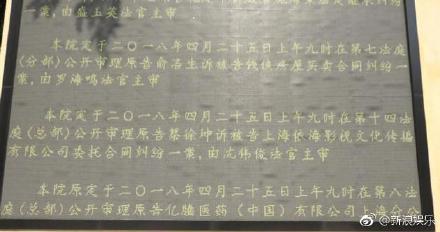 一案,由盛玉英法官主审
本院定于二〇一八年四月二十五日上午九时在第七法庭
(分部)公开审理原告俞名生诉被告钱侠房屋买卖合同纠纷一
案,由罗海鸣法官主审
本院定于二〇一八年四月二十五日上午九时在第十四法
庭(总部)公开审理原告蔡徐坤诉被告上海依海影视文化传播
有限公司委托合同纠纷一案,由沈伟俊法官主审
本院原定于二〇一八年四月二十五日上午九时在第八法
庭(总部)公开审理原告亿脑医药(中国)有限公司上海分公
@新浪娱乐